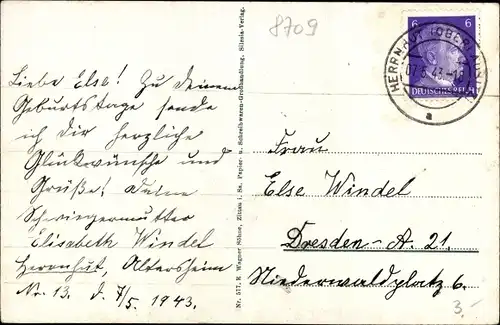 8709
Liebe Else! Zu Deinem
Geburtstage sende
ich Dir herzliche
Glückwünsche und
Grüße! Deine
Schwiegermutter
Elisabeth Windel
Herrnhut, Altersheim
Nr. 13. d. 7/5. 1943.
Nr. 517, E Wagner Söhne, Zittau i. Sa. Papier- u. Schreibwaren-Großhandlung. Silesia-Verlag.
6 6
DEUTSCHES REICH
HERRNHUT (OBERLAUSITZ)
07.5.43
a
Frau
Else Windel
Dresden-A. 21.
Niederwaldplatz 6.
3,-